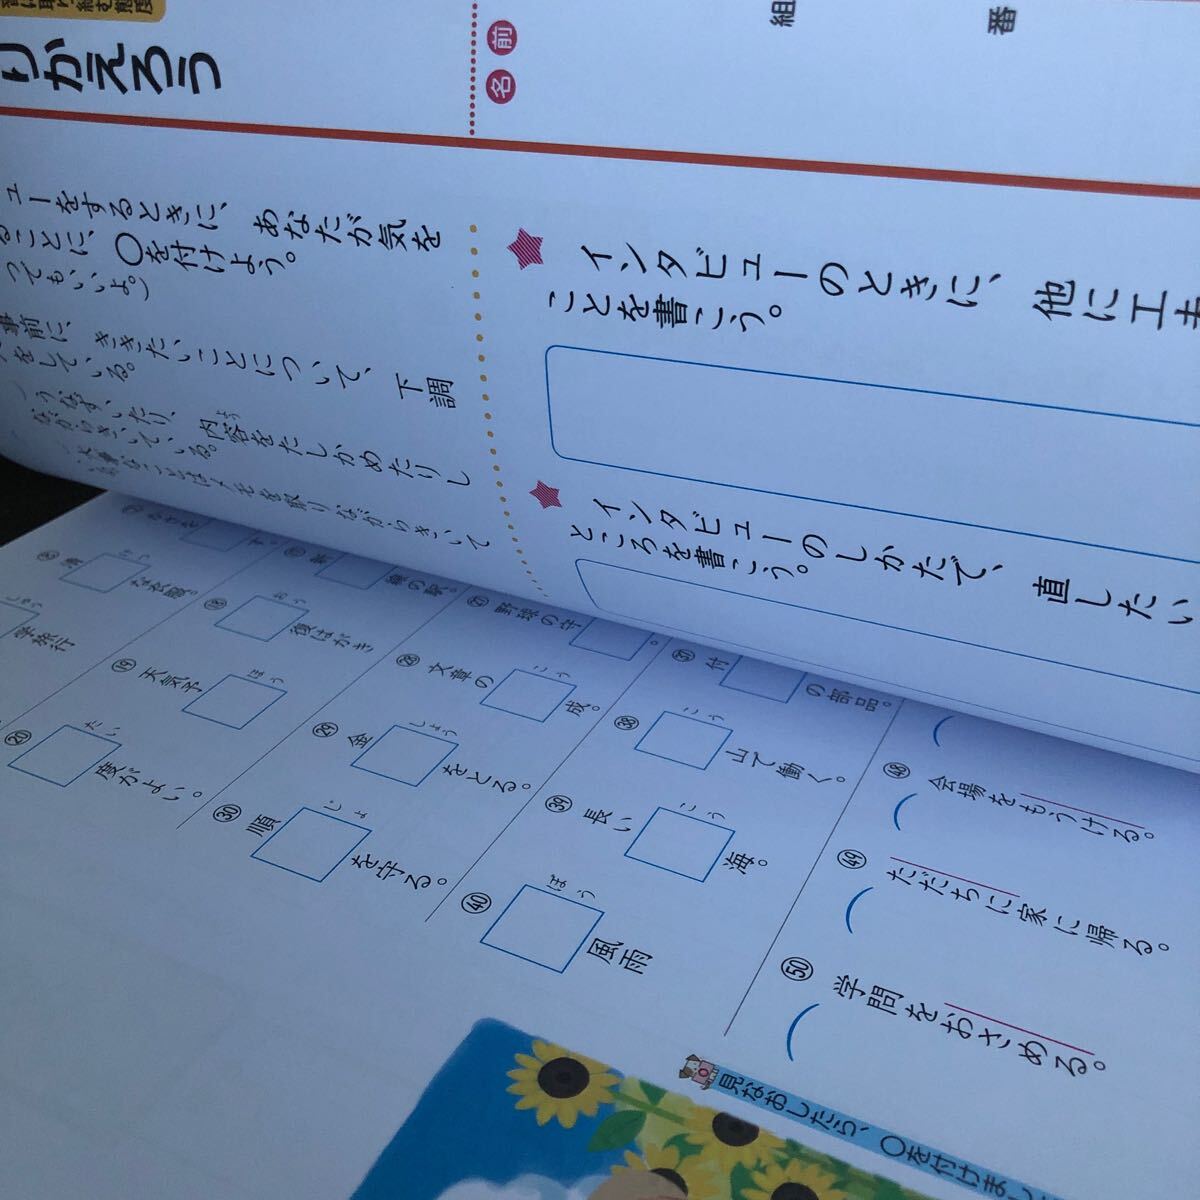 りかえろう
名前
組
番
ューをするときに、あなたが気を
ることに、〇を付けよう。
ってもいいよ。）
事前に、ききたいことについて、下調
をしている。
うなずいたり、内容をたしかめたりし
ながらきいている。
大事なことはメモを取りながらきいて
インタビューのときに、他に工夫
ことを書こう。
インタビューのしかたで、直したい
ところを書こう。
しゅう
学旅行
⑱
おう
復はがき
⑲
天気予
ほう
⑳
たい
度がよい。
線の駅。
㉗
野球の守
。
㉘
文章の
こう
成。
㉙
金
しょう
をとる。
㉚
順
じょ
を守る。
㊲
付
の部品。
㊳
こう
山で働く。
㊴
長い
こう
海。
㊵
ぼう
風雨
㊽
会場をもうける。
㊾
ただちに家に帰る。
㊿
学問をおさめる。
見なおしたら、〇を付けまし